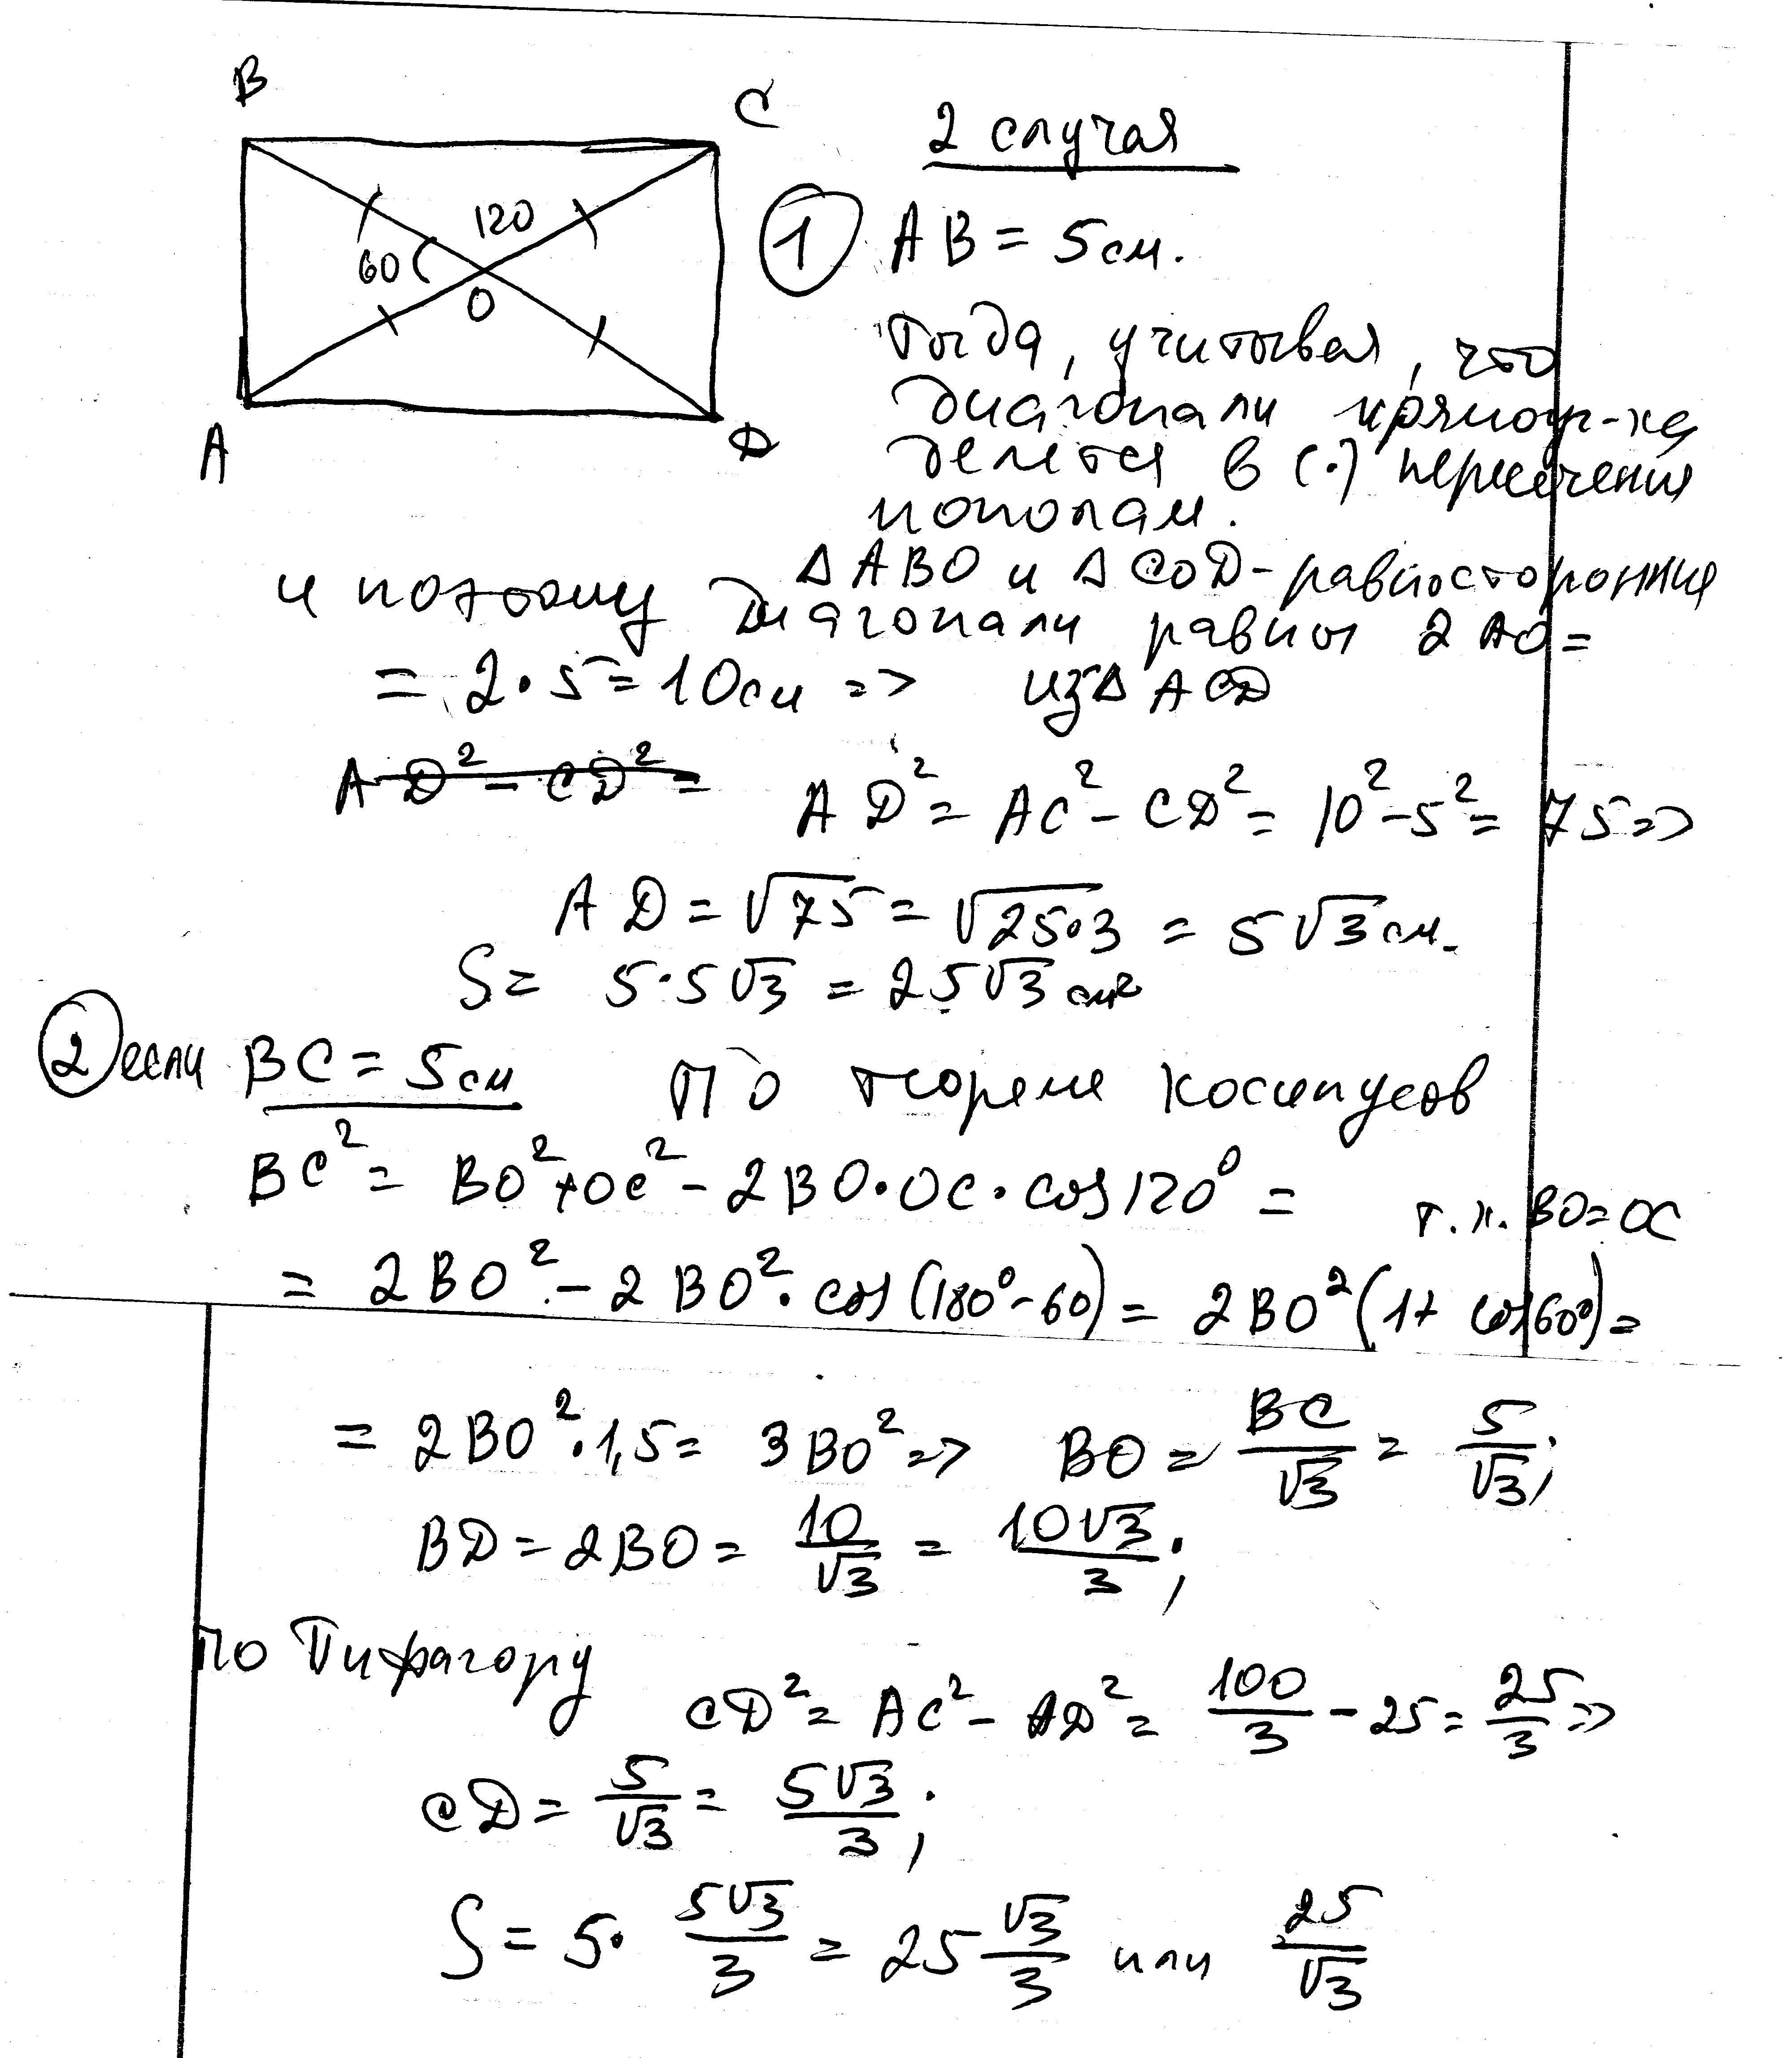 B
C
120
60
O
A
D
2 случая
1 AB = 5 см.
тогда, учитывая, что
диагонали прямоуг-ка
делятся в (·) пересечения
пополам.
△ ABO и △ COD - равносторонние
и поэтому диагонали равны 2 AO =
= 2 · 5 = 10 см => из △ ACD
AD² - CD² =
AD² = AC² - CD² = 10² - 5² = 75 =>
AD = √75 = √25·3 = 5√3 см.
S = 5·5√3 = 25√3 см²
2 если BC = 5 см По теореме косинусов
BC² = BO² + OC² - 2BO·OC·cos120° = т.к. BO = OC
= 2BO² - 2BO²·cos(180° - 60) = 2BO²(1 + cos60°) =
= 2BO²·1,5 = 3BO² => BO = BC/√3 = 5/√3;
BD = 2BO = 10/√3 = 10√3/3;
по Пифагору
CD² = AC² - AD² = 100/3 - 25 = 25/3 =>
CD = 5/√3 = 5√3/3;
S = 5·5√3/3 = 25 √3/3 или 25/√3